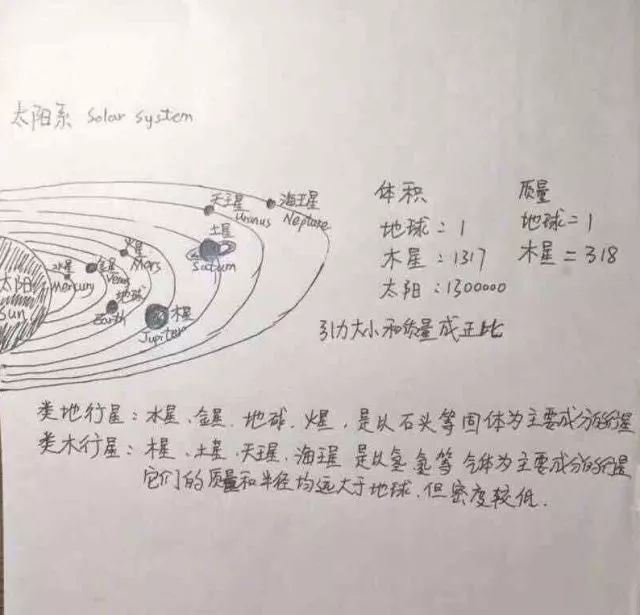 太阳系 Solar System
天王星
Uranus
海王星
Neptune
土星
Saturn
火星
Mars
水星
Mercury
金星
Venus
地球
Earth
木星
Jupiter
太阳
Sun
体积
地球=1
木星:1317
太阳:1300000
质量
地球=1
木星=318
引力大小和质量成正比
类地行星:水星、金星、地球、火星,是以石头等固体为主要成分的行星
类木行星:木星、土星、天王星、海王星 是以氢、氦等 气体为主要成分的行星
它们的质量和半径均远大于地球,但密度较低.